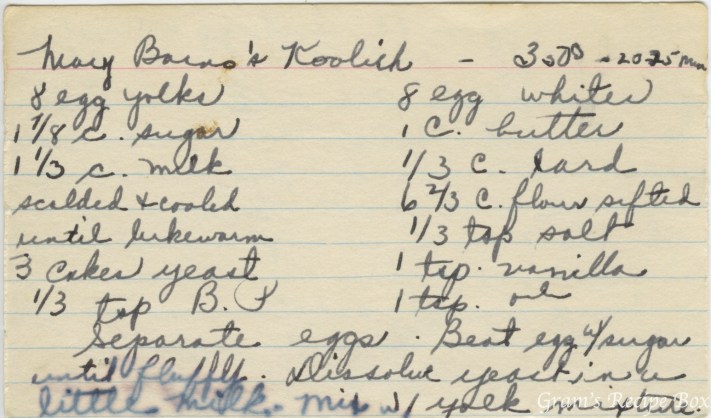 Mary Barno's Koolich - 350° - 20-25 min
8 egg yolks 8 egg whites
1 7/8 c. sugar 1 C. butter
1 1/3 c. milk 1/3 C. lard
scalded + cooled 6 2/3 C. flour sifted
until lukewarm 1/3 tsp salt
3 cakes yeast 1 tsp. vanilla
1/3 tsp B. P 1 tsp.
Separate eggs. Beat egg w/ sugar
until fluffy. Dissolve yeast in a
little milk. Mix w/ yolk mixture.
Gram's Recipe Box